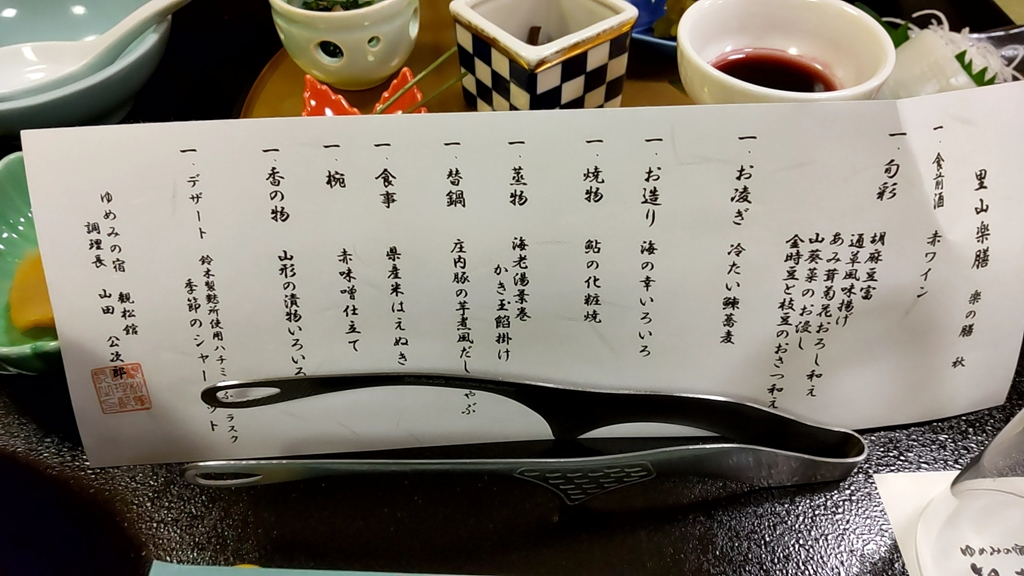 里山楽膳 楽の膳 秋
一.食前酒 赤ワイン
一.旬彩
胡麻豆富
通草風味揚げ
あみ茸菊花おろし和え
山葵菜のお浸し
金時豆と枝豆のおさつ和え
一.お凌ぎ 冷たい鰊蕎麦
一.お造り 海の幸いろいろ
一.焼物 鮎の化粧焼
一.蒸物 海老湯葉巻
かき玉餡掛け
一.替鍋 庄内豚の芋煮風だし ゃぶ
一.食事 県産米はえぬき
一.椀 赤味噌仕立て
一.香の物 山形の漬物いろいろ
一.デザート 鈴木製麩所使用ハチミ ふ ラスク
季節のシャー ット
ゆめみの宿 観松館
調理長 山田 公次郎